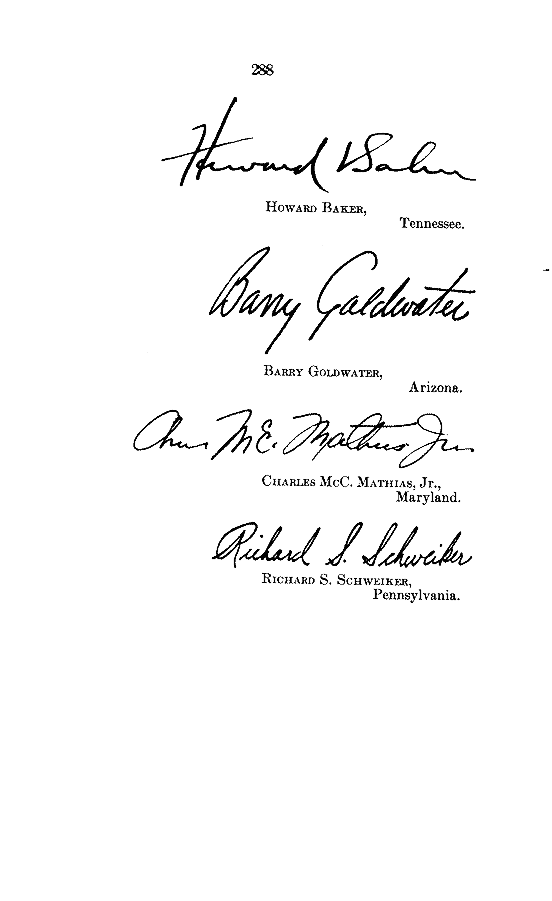 288
Howard Baker
HOWARD BAKER,
Tennessee.
Barry Goldwater
BARRY GOLDWATER,
Arizona.
Chas McC. Mathias Jr.
CHARLES McC. MATHIAS, Jr.,
Maryland.
Richard S. Schweiker
RICHARD S. SCHWEIKER,
Pennsylvania.